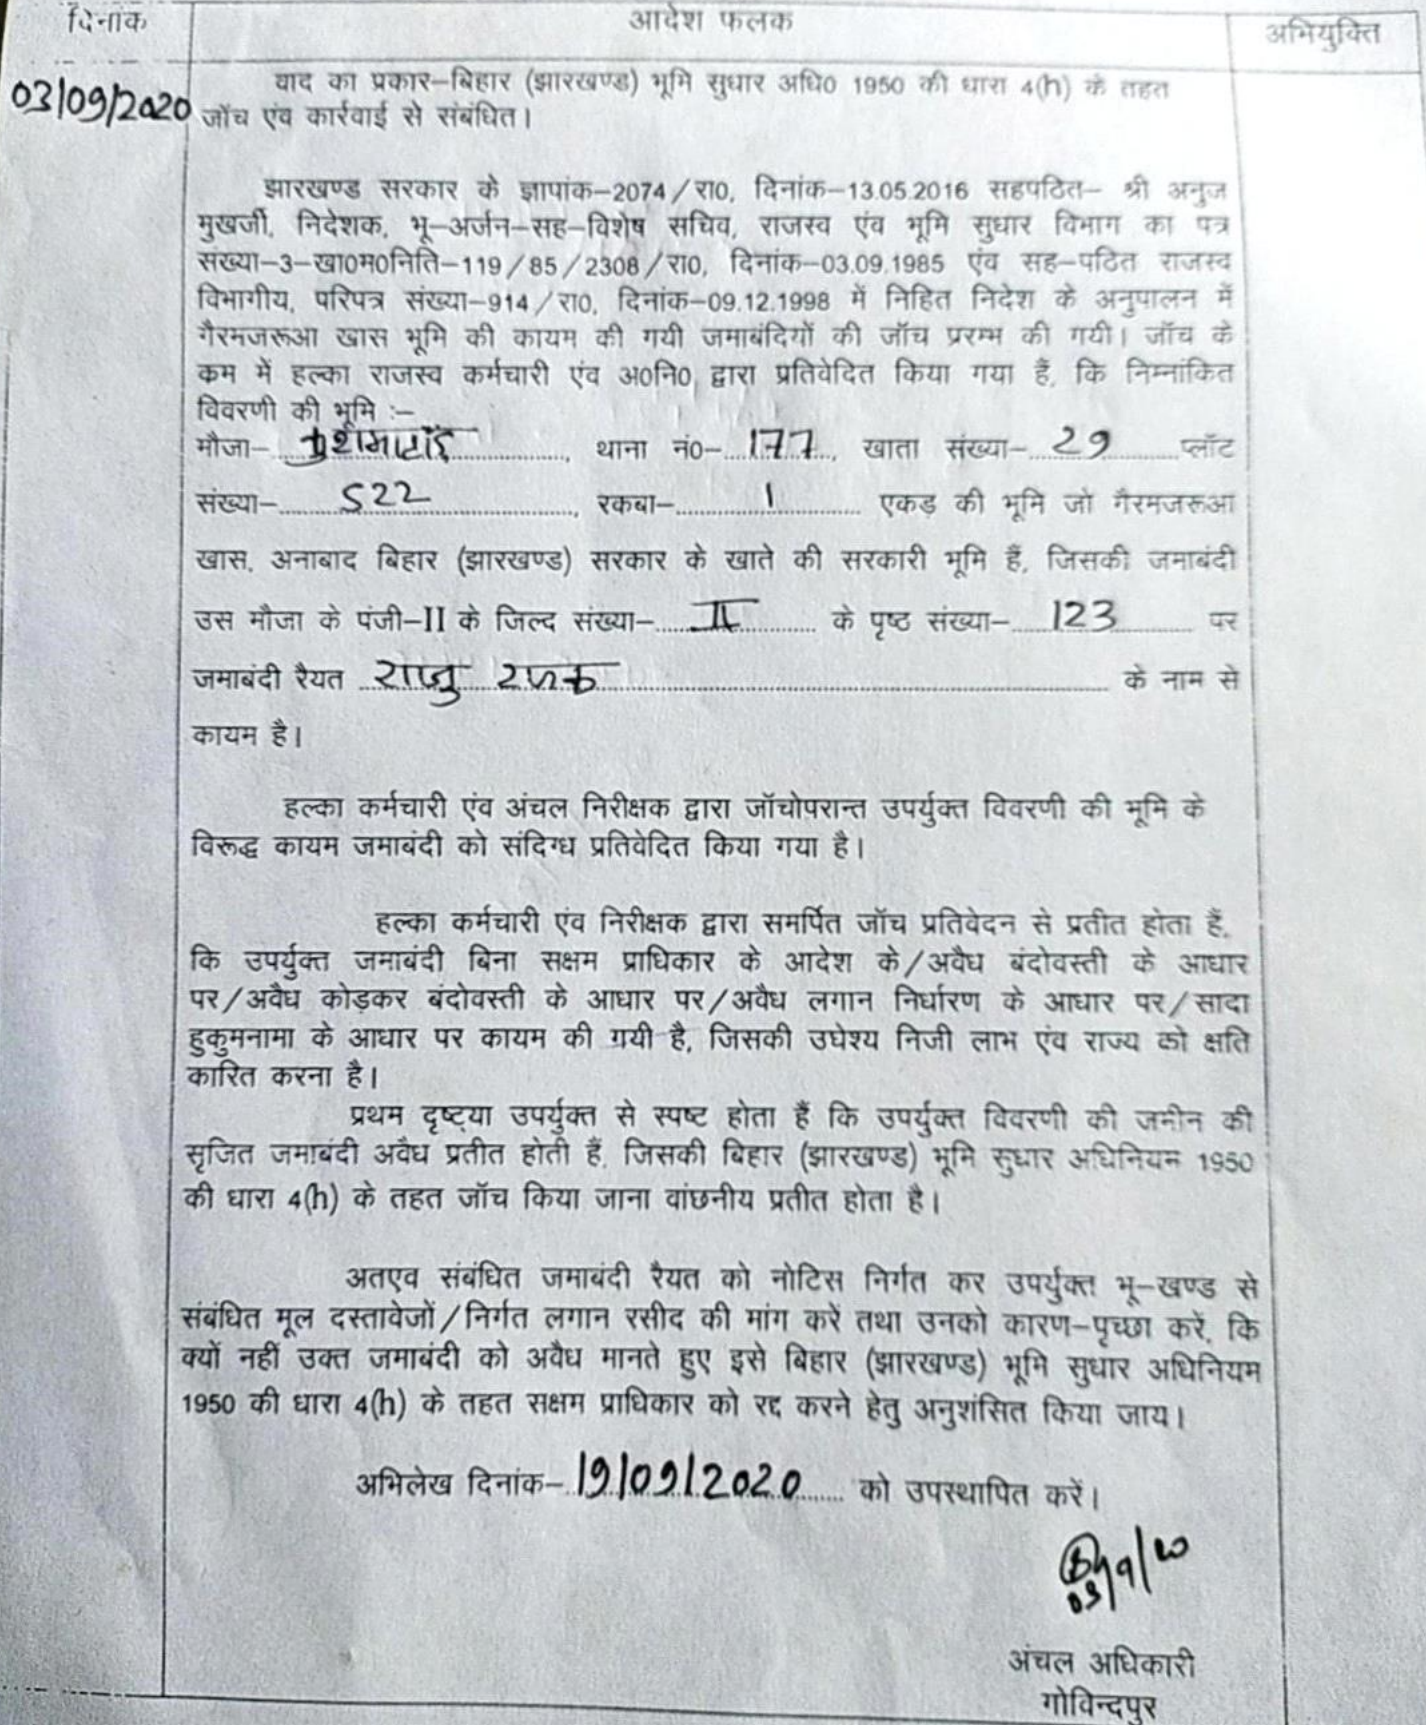 दिनांक आदेश फलक अभियुक्ति
03/09/2020
वाद का प्रकार–बिहार (झारखण्ड) भूमि सुधार अधि0 1950 की धारा 4(h) के तहत
जॉच एंव कार्रवाई से संबंधित।
झारखण्ड सरकार के ज्ञापांक–2074/रा0, दिनांक–13.05.2016 सहपठित– श्री अनुज
मुखर्जी, निदेशक, भू–अर्जन–सह–विशेष सचिव, राजस्व एंव भूमि सुधार विभाग का पत्र
संख्या–3–खा0म0निति–119/85/2308/रा0, दिनांक–03.09.1985 एंव सह–पठित राजस्व
विभागीय, परिपत्र संख्या–914/रा0, दिनांक–09.12.1998 में निहित निदेश के अनुपालन में
गैरमजरूआ खास भूमि की कायम की गयी जमाबंदियों की जॉच प्ररम्भ की गयी। जॉच के
कम में हल्का राजस्व कर्मचारी एंव अ0नि0 द्वारा प्रतिवेदित किया गया हैं, कि निम्नांकित
विवरणी की भूमि :–
मौजा– थाना नं0– 177, खाता संख्या– 29 प्लॉट
संख्या– 522, रकबा– 1 एकड़ की भूमि जो गैरमजरूआ
खास, अनाबाद बिहार (झारखण्ड) सरकार के खाते की सरकारी भूमि हैं, जिसकी जमाबंदी
उस मौजा के पंजी–II के जिल्द संख्या– II के पृष्ठ संख्या– 123 पर
जमाबंदी रैयत राजु रजक के नाम से
कायम है।
हल्का कर्मचारी एंव अंचल निरीक्षक द्वारा जॉचोपरान्त उपर्युक्त विवरणी की भूमि के
विरूद्ध कायम जमाबंदी को संदिग्ध प्रतिवेदित किया गया है।
हल्का कर्मचारी एंव निरीक्षक द्वारा समर्पित जॉच प्रतिवेदन से प्रतीत होता हैं,
कि उपर्युक्त जमाबंदी बिना सक्षम प्राधिकार के आदेश के/अवैध बंदोवस्ती के आधार
पर/अवैध कोड़कर बंदोवस्ती के आधार पर/अवैध लगान निर्धारण के आधार पर/सादा
हुकुमनामा के आधार पर कायम की गयी है, जिसकी उघेश्य निजी लाभ एंव राज्य को क्षति
कारित करना है।
प्रथम दृष्टया उपर्युक्त से स्पष्ट होता हैं कि उपर्युक्त विवरणी की जमीन की
सृजित जमाबंदी अवैध प्रतीत होती हैं, जिसकी बिहार (झारखण्ड) भूमि सुधार अधिनियम 1950
की धारा 4(h) के तहत जॉच किया जाना वांछनीय प्रतीत होता है।
अतएव संबंधित जमाबंदी रैयत को नोटिस निर्गत कर उपर्युक्त भू–खण्ड से
संबंधित मूल दस्तावेजों/निर्गत लगान रसीद की मांग करें तथा उनको कारण–पृच्छा करें, कि
क्यों नहीं उक्त जमाबंदी को अवैध मानते हुए इसे बिहार (झारखण्ड) भूमि सुधार अधिनियम
1950 की धारा 4(h) के तहत सक्षम प्राधिकार को रद्द करने हेतु अनुशंसित किया जाय।
अभिलेख दिनांक– 19/09/2020 को उपस्थापित करें।
03/9/20
अंचल अधिकारी
गोविन्दपुर